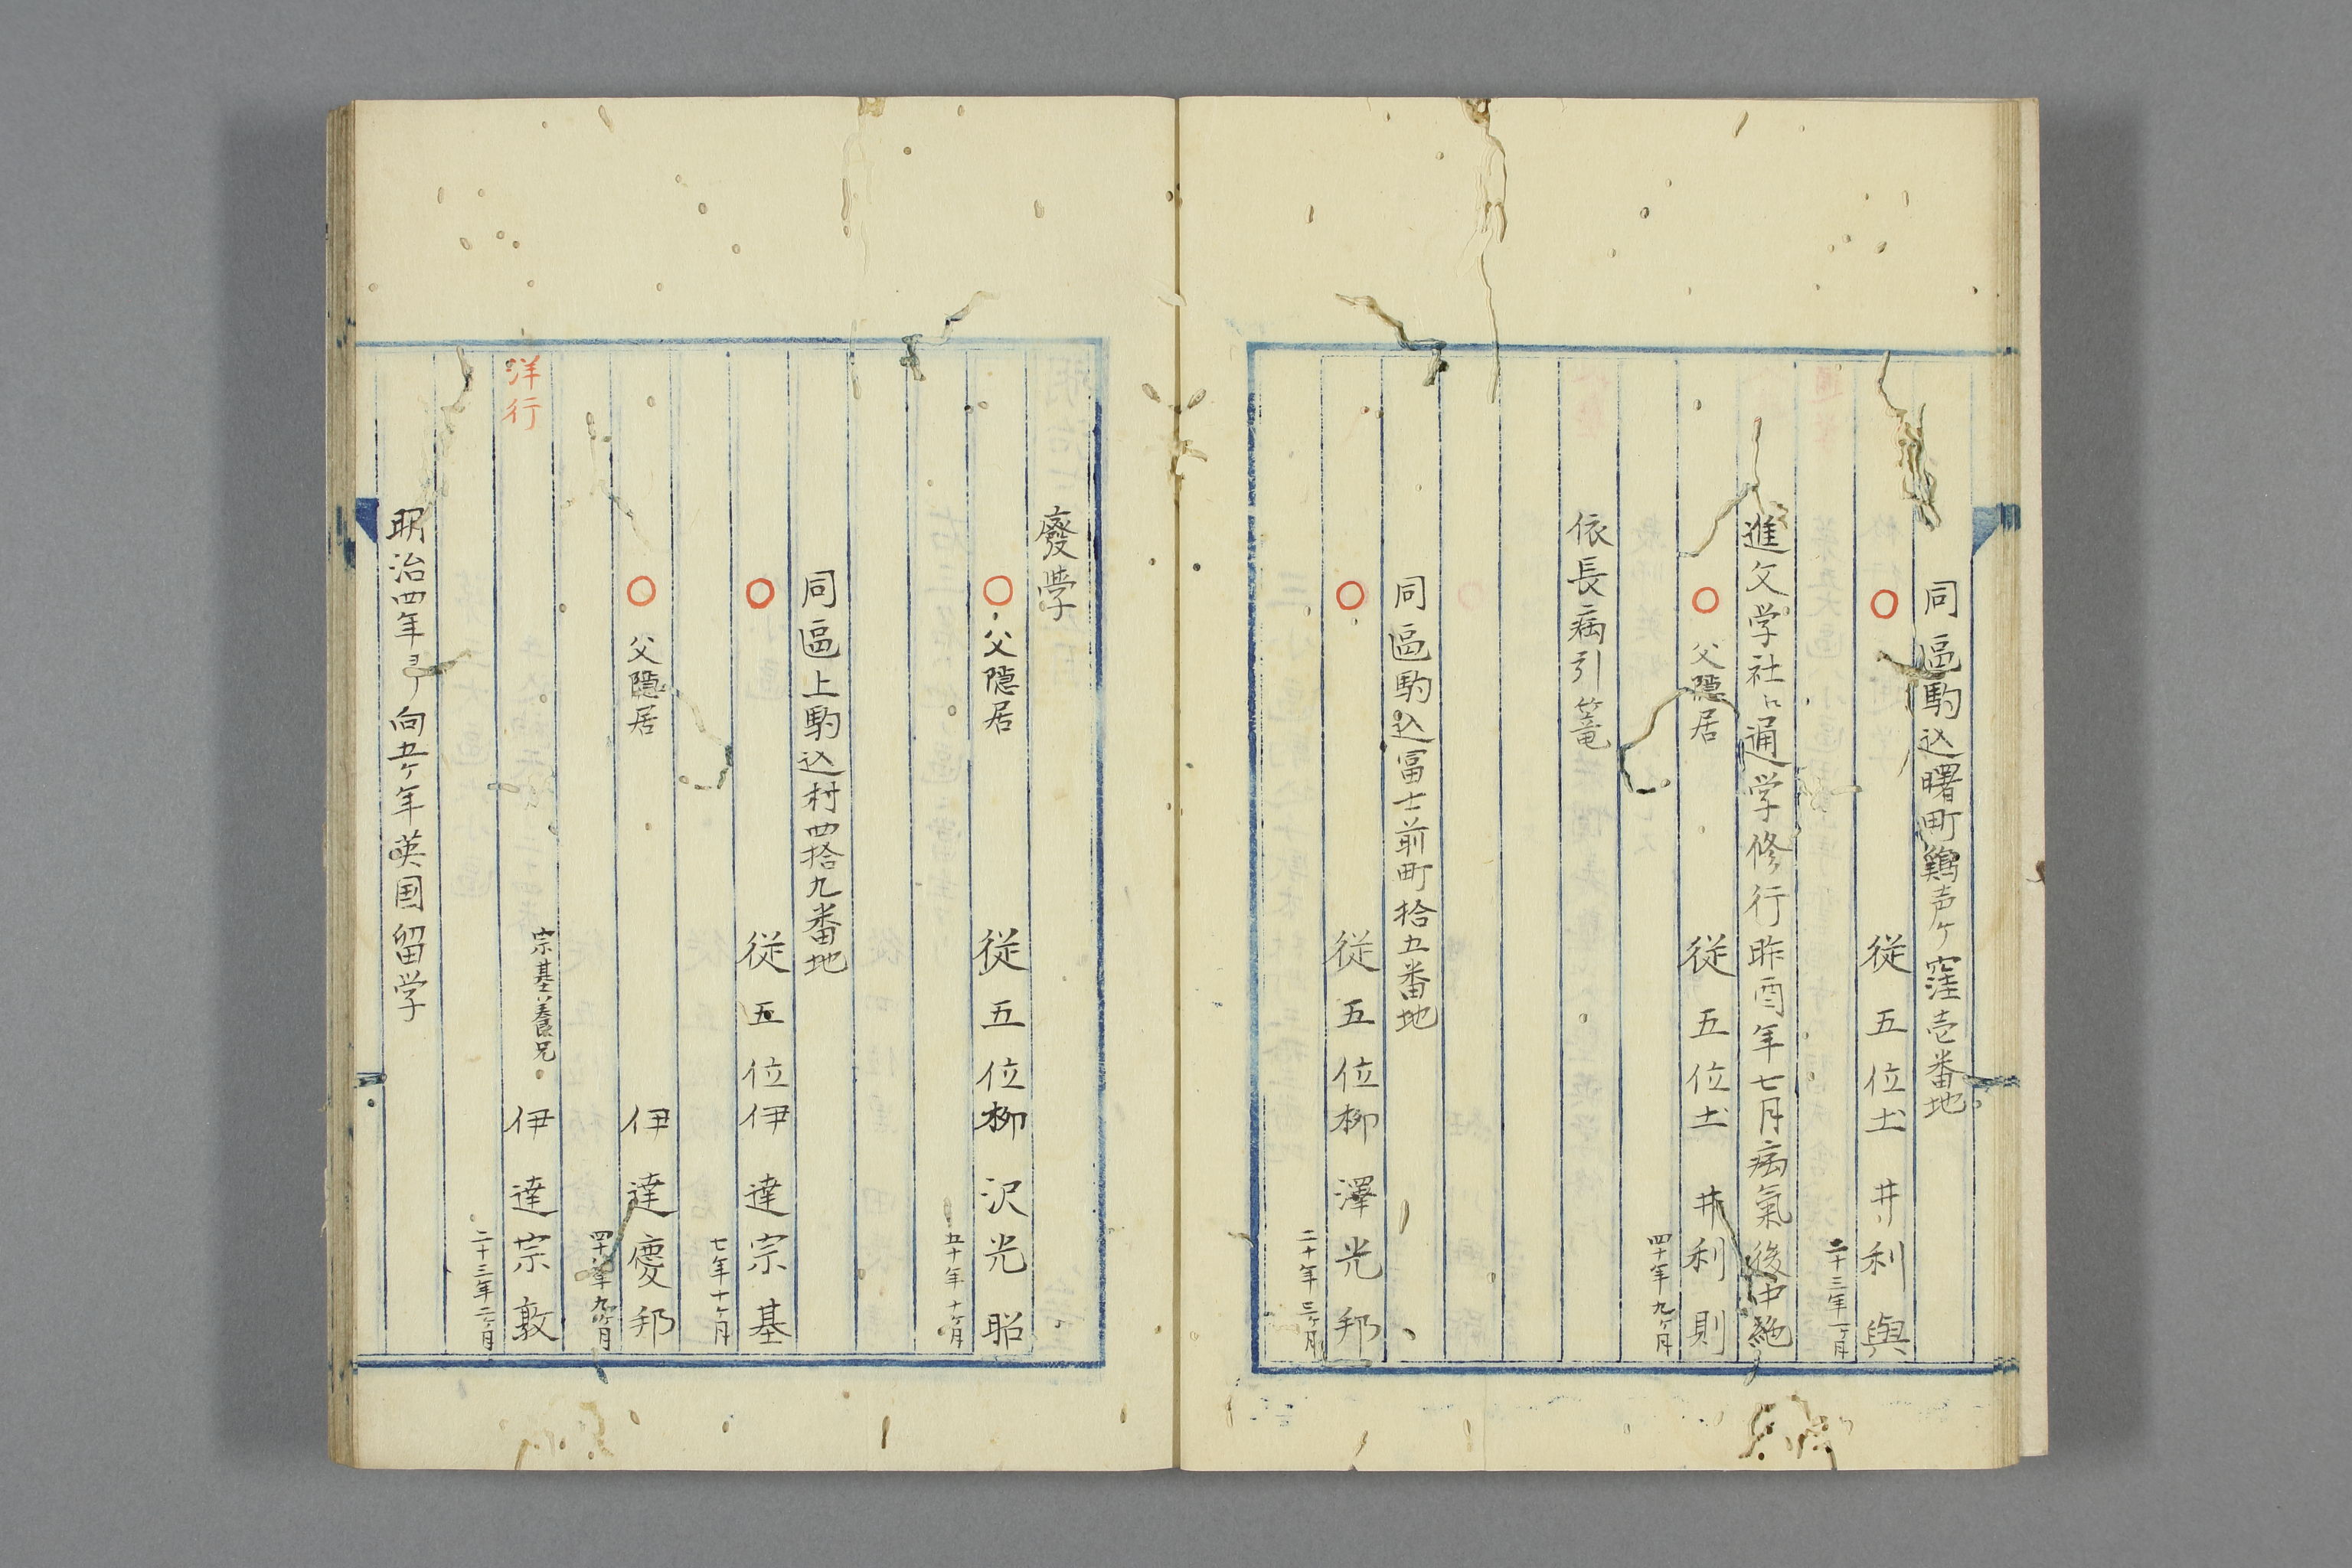 同區駒込曙町鶏声ヶ窪壱番地
〇 従五位土井利與
二十三年一ヶ月
進文学社ニ通学修行昨酉年七月病氣後中絶
〇 父隠居 従五位土井利則
四十年九ヶ月
依長病引篭
同區駒込冨士前町拾五番地
〇 従五位柳澤光邦
二十年三ヶ月
廢学
〇 父隠居 従五位柳沢光昭
五十年十ヶ月
同區上駒込村四拾九番地
〇 従五位伊達宗基
七年十ヶ月
〇 父隠居 伊達慶邦
九ヶ月
洋行 宗基養兄 伊達宗敦
二十三年二ヶ月
明治四年ヨリ向五ヶ年英国留学